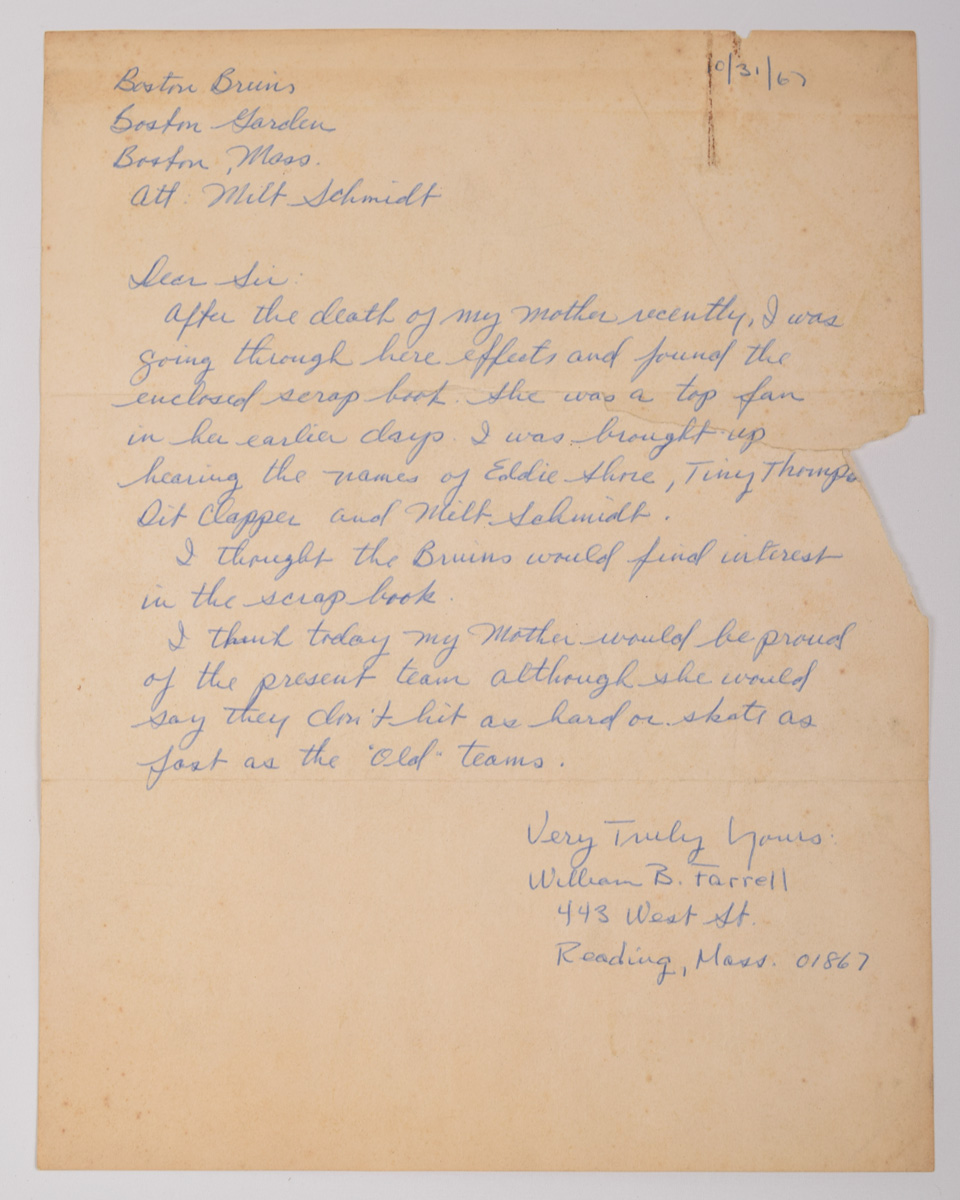 0/31/67
Boston Bruins
Boston Garden
Boston, Mass.
Att: Milt Schmidt
Dear Sir:
After the death of my mother recently, I was
going through here effects and found the
enclosed scrap book. She was a top fan
in her earlier days. I was brought up
hearing the names of Eddie Shore, Tiny Thomps
Dit Clapper and Milt Schmidt.
I thought the Bruins would find interest
in the scrap book.
I think today my Mother would be proud
of the present team although she would
say they don't hit as hard or skate as
fast as the "Old" teams.
Very Truly Yours:
William B. Farrell
443 West St.
Reading, Mass. 01867